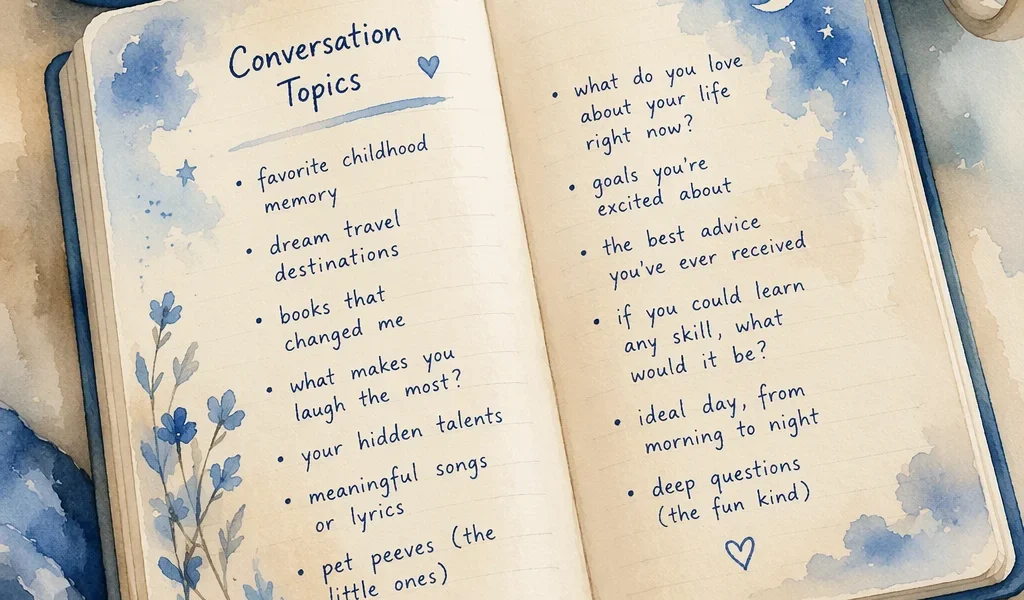 Conversation
Topics
• favorite childhood
memory
• dream travel
destinations
• books that
changed me
• what makes you
laugh the most?
• your hidden talents
• meaningful songs
or lyrics
• pet peeves (the
little ones)
• what do you love
about your life
right now?
• goals you're
excited about
• the best advice
you've ever received
• if you could learn
any skill, what
would it be?
• ideal day, from
morning to night
• deep questions
(the fun kind)